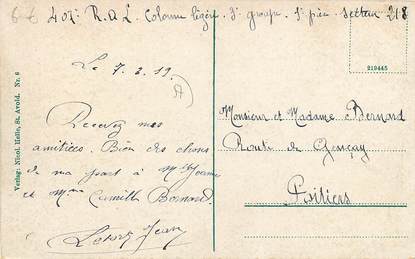 407e R.A.L. Colonne légère. 3e groupe. 1e pièce. Secteur 218
219445
Le 7.2.19.
Recevez mes
amitiées. Bien des choses
de ma part à Mr
et Mme Camille Bernard
Jean
Monsieur et Madame Bernard
Route de Gençay
Poitiers
Verlag: Nicol. Helle, St. Avold. Nr. 6